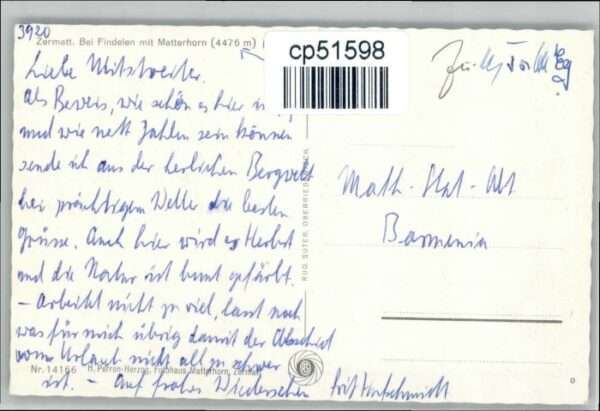 3920
Zermatt. Bei Findelen mit Matterhorn (4476 m)
cp51598
Liebe Mitstreiter.
Als Beweis, wie schön es hier ist
und wie nett Zahlen sein können
sende ich aus der herlichen Bergwelt
bei prächtigem Wetter die besten
Grüsse. Auch hier wird es Herbst
und die Natur ist bunt gefärbt.
- Arbeitet nicht zu viel, lasst noch
was für mich übrig damit der Abschied
vom Urlaub nicht all zu schwer
ist. - Auf frohes Wiedersehen
Math-Stat-Abt
Barmenia
RUD. SUTER, OBERRIEDEN-ZCH
Nr. 14166 H. Perren-Herzog, Fotohaus Matterhorn, Zermatt